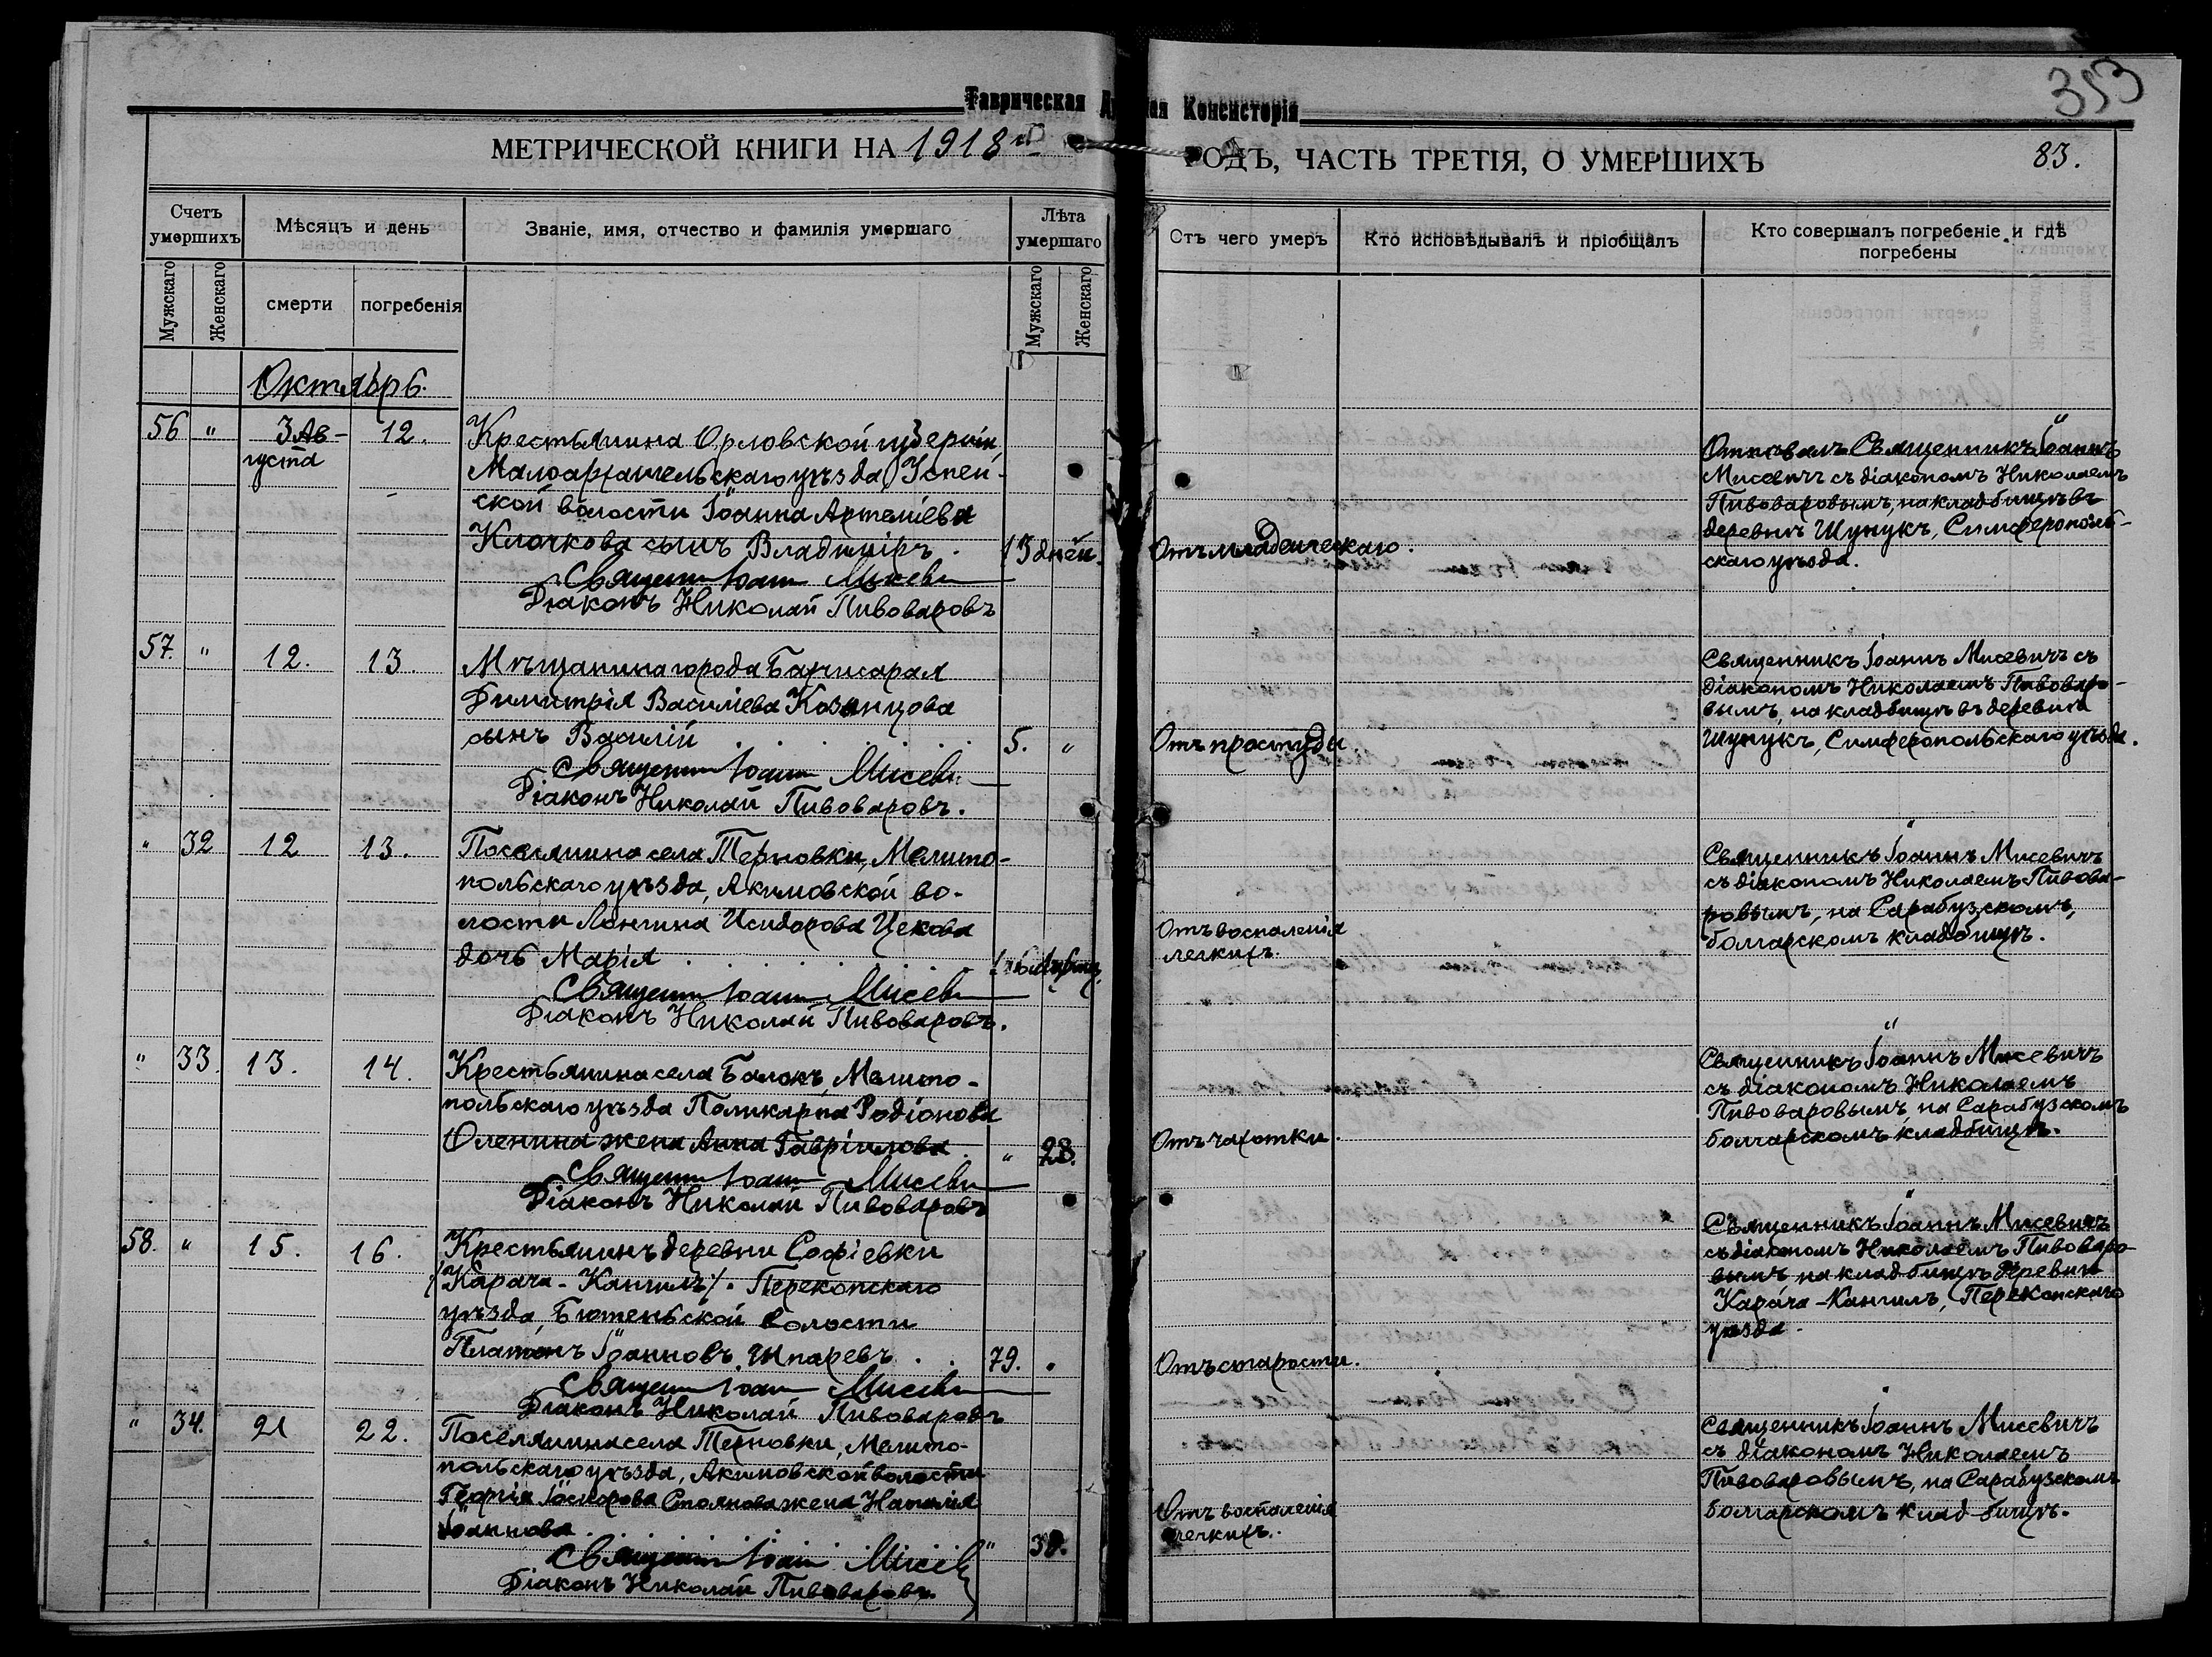 353
Таврическая
Консисторія
МЕТРИЧЕСКОЙ КНИГИ НА 1918 й
ГОДЪ, ЧАСТЬ ТРЕТІЯ, О УМЕРШИХЪ
83.
Счетъ умершихъ
Мѣсяцъ и день
Званіе, имя, отчество и фамилія умершаго
Лѣта умершаго
Отъ чего умеръ
Кто исповѣдывалъ и пріобщалъ
Кто совершалъ погребеніе и гдѣ погребены
Мужскаго
Женскаго
смерти
погребенія
Мужскаго
Женскаго
Октябрь.
56 " 3 Ав-густа 12.
Крестьянина Орловской губерніи,
Малоархангельскаго уѣзда, Успен-
ской волости Іоанна Артеміева
Клочкова сынъ Владиміръ.
13 дней.
Отъ младенческаго.
Священникъ Іоаннъ
Мисевичъ съ діакономъ Николаемъ
Пивоваровымъ, на кладбищѣ въ
деревнѣ Шунукъ, Симферополь-
скаго уѣзда.
Діаконъ Николай Пивоваровъ
57. " 12. 13.
Мѣщанина города Бахчисарая
Димитрія Василіева Казанцова
сынъ Василій
5. "
Отъ простуды
Священникъ Іоаннъ Мисевичъ съ
діакономъ Николаемъ Пивоваро-
вымъ, на кладбищѣ въ деревнѣ
Шунукъ, Симферопольскаго уѣзда.
Діаконъ Николай Пивоваровъ.
" 32 12 13.
Поселянина села Терновки, Мелито-
польскаго уѣзда, Акимовской во-
лости Лонгина Исидорова Цекова
дочь Марія
Отъ воспаленія
легкихъ.
Священникъ Іоаннъ Мисевичъ
съ діакономъ Николаемъ Пивова-
ровымъ, на Сарабузскомъ,
болгарскомъ кладбищѣ.
Діаконъ Николай Пивоваровъ.
" 33. 13. 14.
Крестьянина села Балокъ, Мелито-
польскаго уѣзда Поликарпа Родіонова
Оленина жена Анна Гавріилова
" 28.
Отъ чахотки.
Священникъ Іоаннъ Мисевичъ
съ діакономъ Николаемъ
Пивоваровымъ, на Сарабузскомъ
болгарскомъ кладбищѣ.
Діаконъ Николай Пивоваровъ
58. " 15. 16.
Крестьянинъ деревни Софіевки
/Карача-Кангилъ/. Перекопскаго
уѣзда, Бютеньской волости
Платонъ Іоанновъ Шпаревъ
79. "
Отъ старости.
Священникъ Іоаннъ Мисевичъ
съ діакономъ Николаемъ Пивоваро-
вымъ на кладбищѣ деревни
Карача-Кангилъ, Перекопскаго
уѣзда.
Діаконъ Николай Пивоваровъ
" 34. 21 22.
Поселянина села Терновки, Мелито-
польскаго уѣзда, Акимовской волости
Георгія Стоянова жена Наталія
Іоаннова
" 38.
Отъ воспаленія
легкихъ.
Священникъ Іоаннъ Мисевичъ
съ діакономъ Николаемъ
Пивоваровымъ, на Сарабузскомъ
болгарскомъ кладбищѣ.
Діаконъ Николай Пивоваровъ.